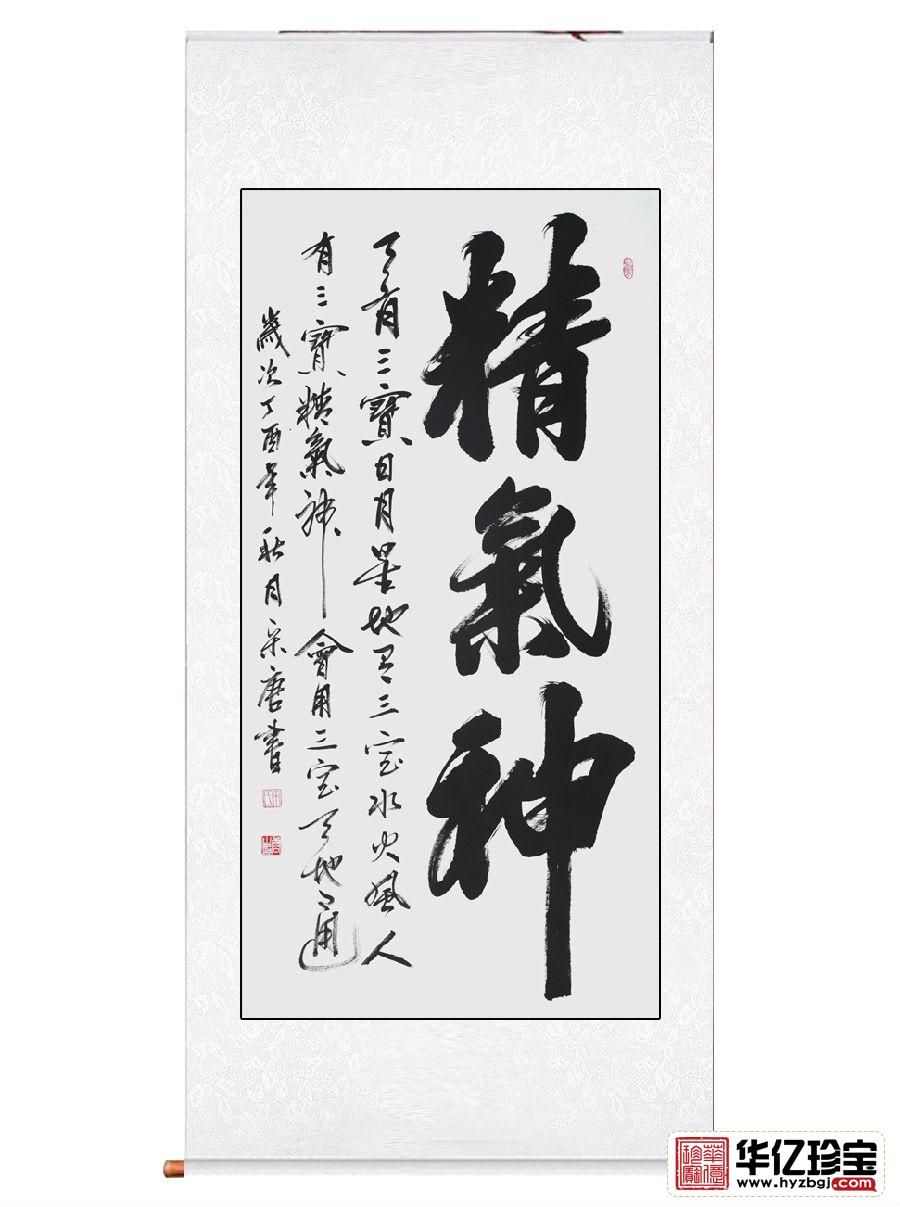 精氣神
天有三寶日月星地有三宝水火風人
有三寶精氣神會用三宝天地通
歲次丁酉年秋月宋唐書
華億珍寶
华亿珍宝
www.hyzbgj.com